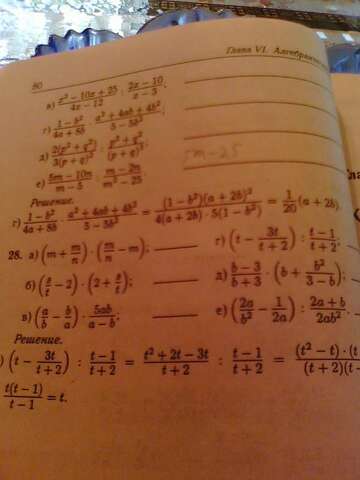 80 Глава VI. Алгебраичес
в) (z² − 10z + 25)/(4z − 12) : (2z − 10)/(z − 3);
г) (1 − b²)/(4a + 8b) · (a² + 4ab + 4b²)/(5 − 5b²);
д) 2(p² + q²)/3(p + q)² : (p² + q²)/(p + q)²;
е) (5m − 10n)/(m − 5) : (m − 2n)/(m² − 25).
5m-25
Решение.
г) (1 − b²)/(4a + 8b) · (a² + 4ab + 4b²)/(5 − 5b²) = (1 − b²)(a + 2b)²/(4(a + 2b) · 5(1 − b²)) = 1/20 (a + 2b).
28. а) (m + m/n) · (m/n − m); г) (t − 3t/(t + 2)) : (t − 1)/(t + 2);
б) (s/t − 2) · (2 + s/t); д) (b − 3)/(b + 3) · (b + b²/(3 − b));
в) (a/b − b/a) · 5ab/(a − b); е) (2a/b² − 1/2a) : (2a + b)/2ab².
Решение.
) (t − 3t/(t + 2)) : (t − 1)/(t + 2) = (t² + 2t − 3t)/(t + 2) : (t − 1)/(t + 2) = (t² − t) · (t/(t + 2)(t −
t(t − 1)/(t − 1) = t.